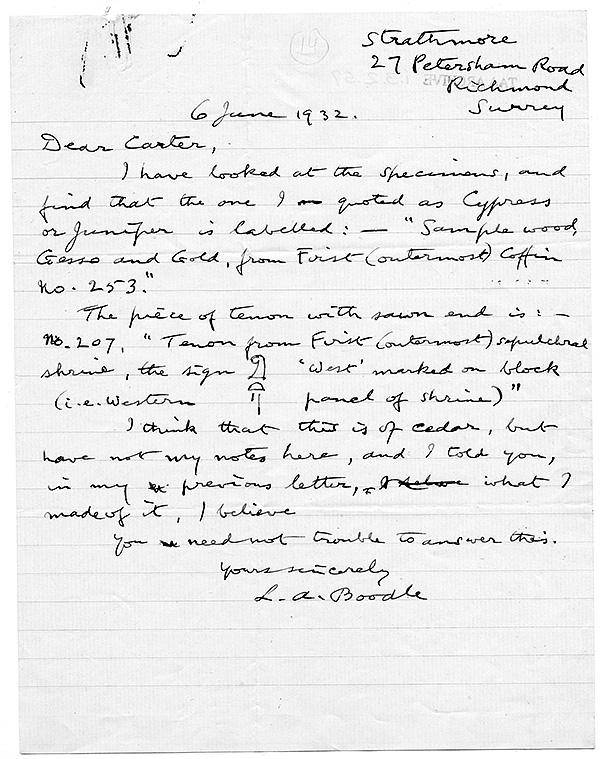 14
Strathmore
27 Petersham Road
Richmond
Surrey
6 June 1932.
Dear Carter,
I have looked at the specimens, and
find that the one I quoted as Cypress
or Juniper is labelled: — "Sample wood,
Gesso and Gold, from First (outermost) Coffin
No. 253."
The piece of tenon with sawn end is: —
No. 207, "Tenon from First (outermost) sepulchral
shrine, the sign 'West' marked on block
(i.e. Western panel of shrine)"
I think that this is of cedar, but
have not my notes here, and I told you,
in my previous letter, what I
made of it, I believe
You need not trouble to answer this.
Yours sincerely
L. A. Boodle